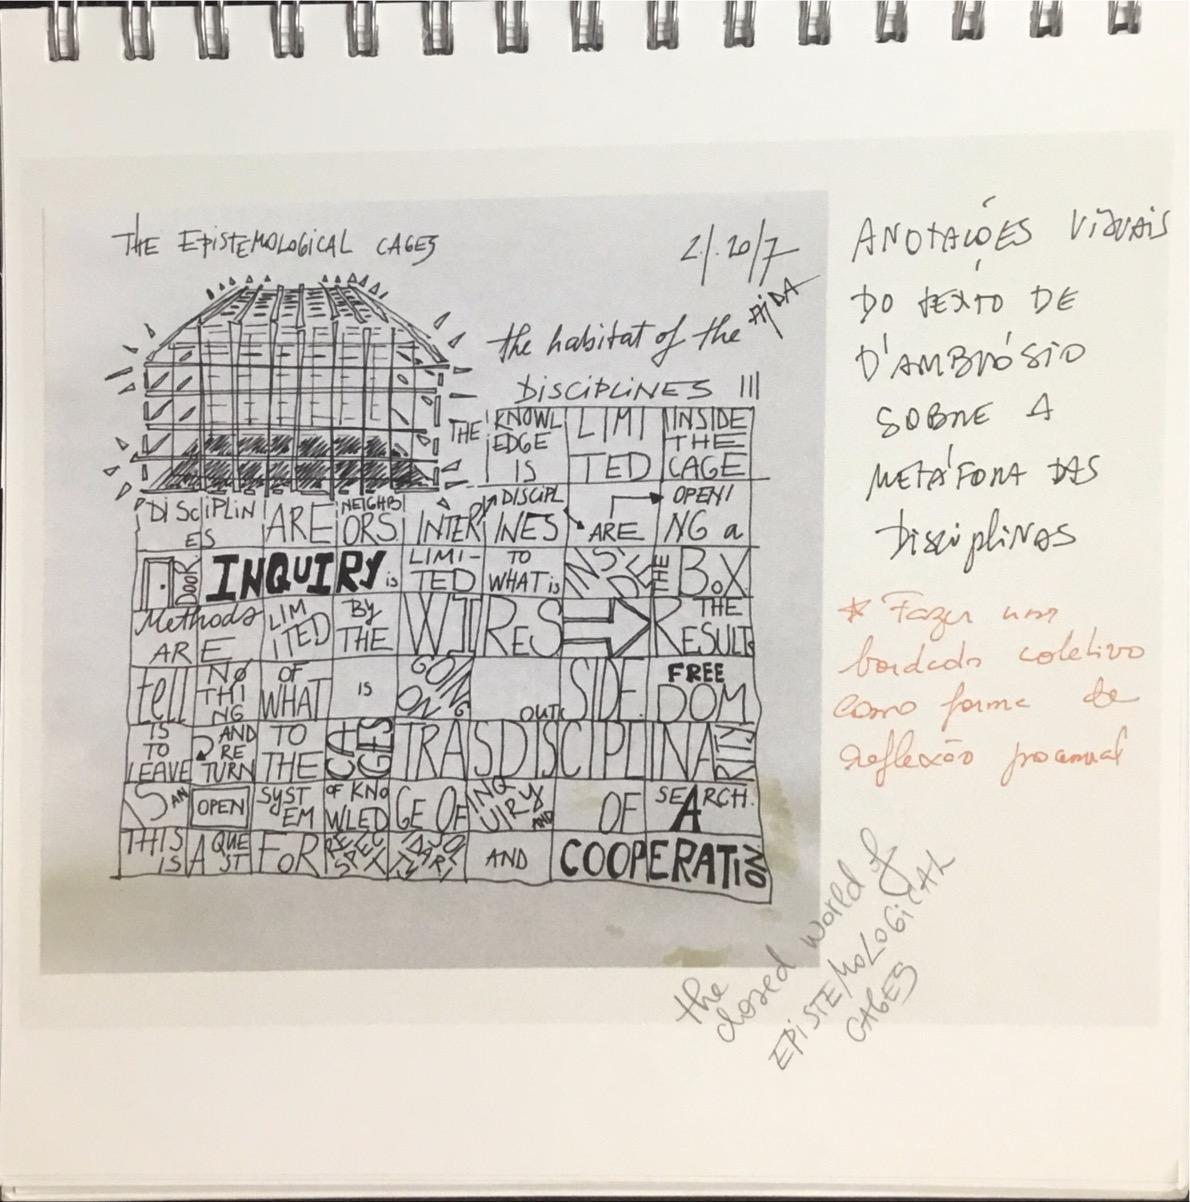 THE EPISTEMOLOGICAL CAGES
2/.20/7
the habitat of the
DISCIPLINES
THE KNOWLEDGE IS LIMITED INSIDE THE CAGE
DISCIPLINES ARE NEIGHBORS. INTER DISCIPLINES ARE OPENING a
DOOR INQUIRY is LIMITED TO WHAT is INSIDE THE BOX
Methods ARE LIMITED BY THE WIRES THE RESULTS
tell NOTHING OF WHAT IS GOING ON OUTSIDE. FREEDOM
IS TO LEAVE AND RETURN TO THE CAGES TRASDISCIPLINARITY
IS AN OPEN SYSTEM OF KNOWLEDGE OF INQUIRY AND OF SEARCH.
THIS IS A QUEST FOR RESPECT SOLIDARITY AND COOPERATION
ANOTAÇÕES VISUAIS
DO TEXTO DE
D'AMBRÓSIO
SOBRE A
METÁFORA DAS
Disciplinas
* Fazer um
bordado coletivo
como forma de
reflexão processual
the
closed world of
EPISTEMOLOGICAL
CAGES